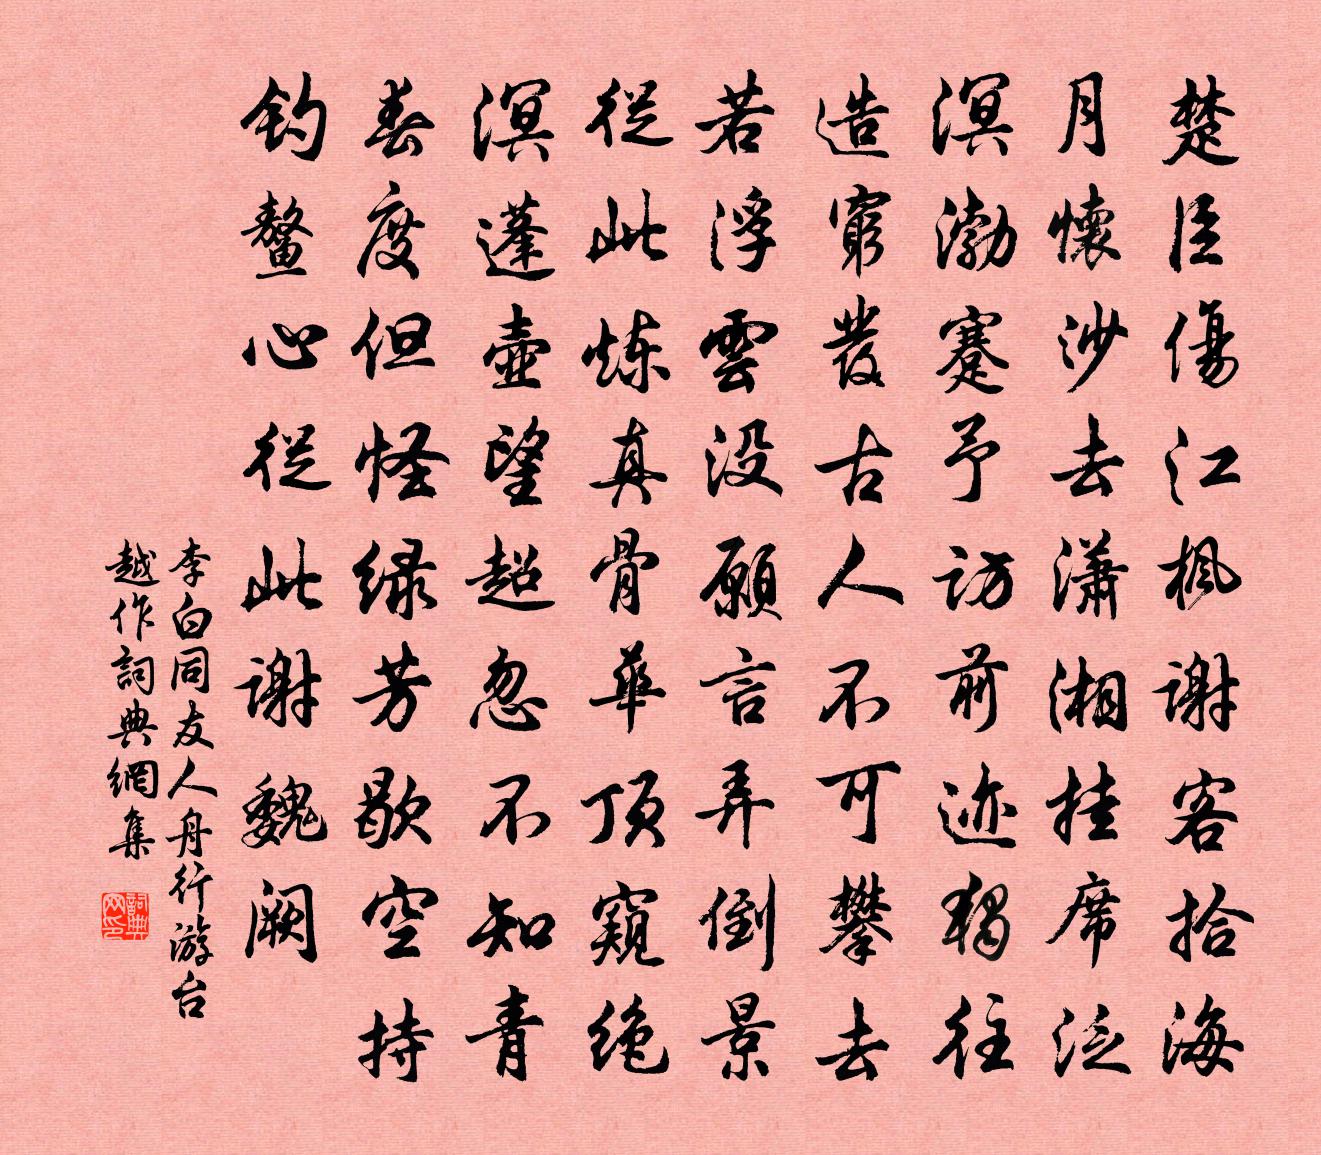 楚臣傷江楓謝客拾海
月懷沙去瀟湘挂席泛
溟渤蹇予訪前迹獨往
造窮發古人不可攀去
若浮雲没願言弄倒景
從此炼真骨華顶窺绝
溟蓬壺望超忽不知青
春度但怪绿芳歇空持
钓鳌心從此謝魏阙
李白同友人舟行游台
越作詞典網集
詞典网印